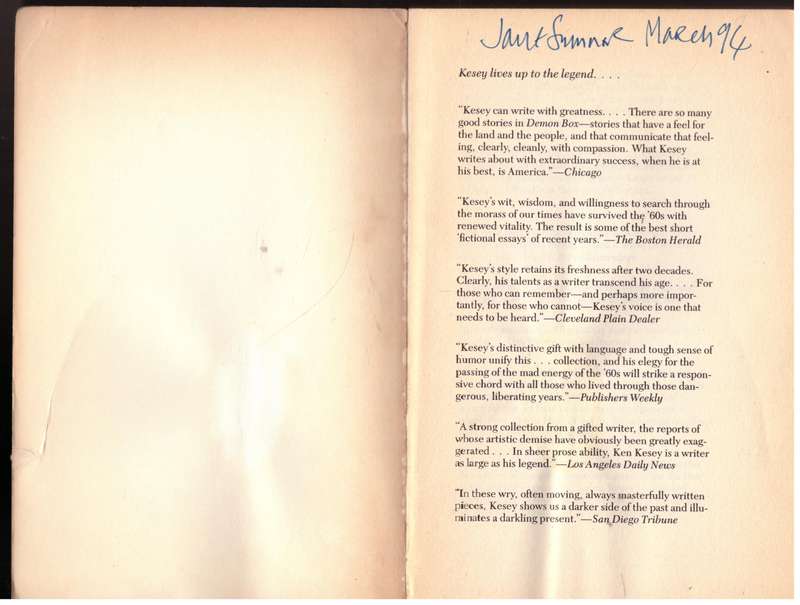 Janet Sumner March 94
Kesey lives up to the legend. . . .
"Kesey can write with greatness. . . . There are so many
good stories in Demon Box—stories that have a feel for
the land and the people, and that communicate that feel-
ing, clearly, cleanly, with compassion. What Kesey
writes about with extraordinary success, when he is at
his best, is America."—Chicago
"Kesey's wit, wisdom, and willingness to search through
the morass of our times have survived the '60s with
renewed vitality. The result is some of the best short
'fictional essays' of recent years."—The Boston Herald
"Kesey's style retains its freshness after two decades.
Clearly, his talents as a writer transcend his age. . . . For
those who can remember—and perhaps more impor-
tantly, for those who cannot—Kesey's voice is one that
needs to be heard."—Cleveland Plain Dealer
"Kesey's distinctive gift with language and tough sense of
humor unify this . . . collection, and his elegy for the
passing of the mad energy of the '60s will strike a respon-
sive chord with all those who lived through those dan-
gerous, liberating years."—Publishers Weekly
"A strong collection from a gifted writer, the reports of
whose artistic demise have obviously been greatly exag-
gerated . . . In sheer prose ability, Ken Kesey is a writer
as large as his legend."—Los Angeles Daily News
"In these wry, often moving, always masterfully written
pieces, Kesey shows us a darker side of the past and illu-
minates a darkling present."—San Diego Tribune